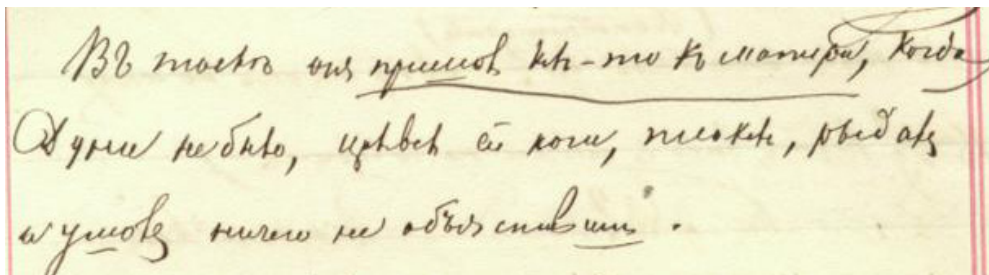 Въ тоскѣ онъ пришолъ какъ-то къ матери, когда
Дуни не было, цѣловалъ ея ноги, плакалъ, рыдалъ
и ушолъ ничего не объяснивши.